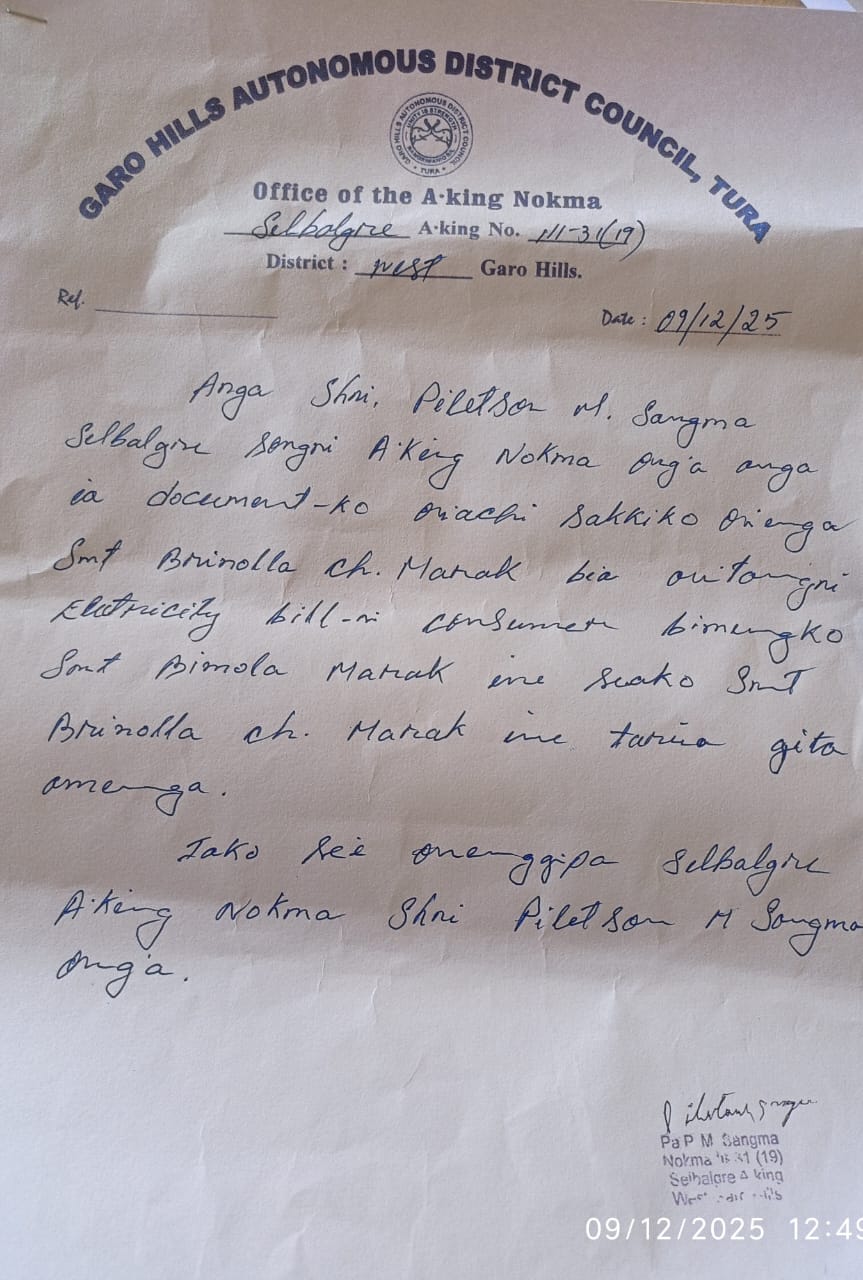 GARO HILLS AUTONOMOUS DISTRICT COUNCIL, TURA
GARO HILLS AUTONOMOUS DISTRICT COUNCIL
UNITY IS STRENGTH
TURA
Office of the A·king Nokma
Selbalgire A·king No. III-31(19)
District : West Garo Hills.
Ref.
Date : 09/12/25
Anga Shri. Piletson M. Sangma
Selbalgire songni A·king Nokma ong'a anga
ia document-ko oniachi sakkiko onenga
Smt Brinolla ch. Marak bia an'tangni
Eletricity bill-ni consumer bimungko
Smt Bimola Marak ine seako Smt
Brinolla ch. Marak ine tarina gita
amenga.
Iako see onenggipa Selbalgire
A·king Nokma Shri Piletson M Sangma
ong'a.
Pa P M Sangma
Nokma III 31 (19)
Selbalgre A king
West
09/12/2025 12:49